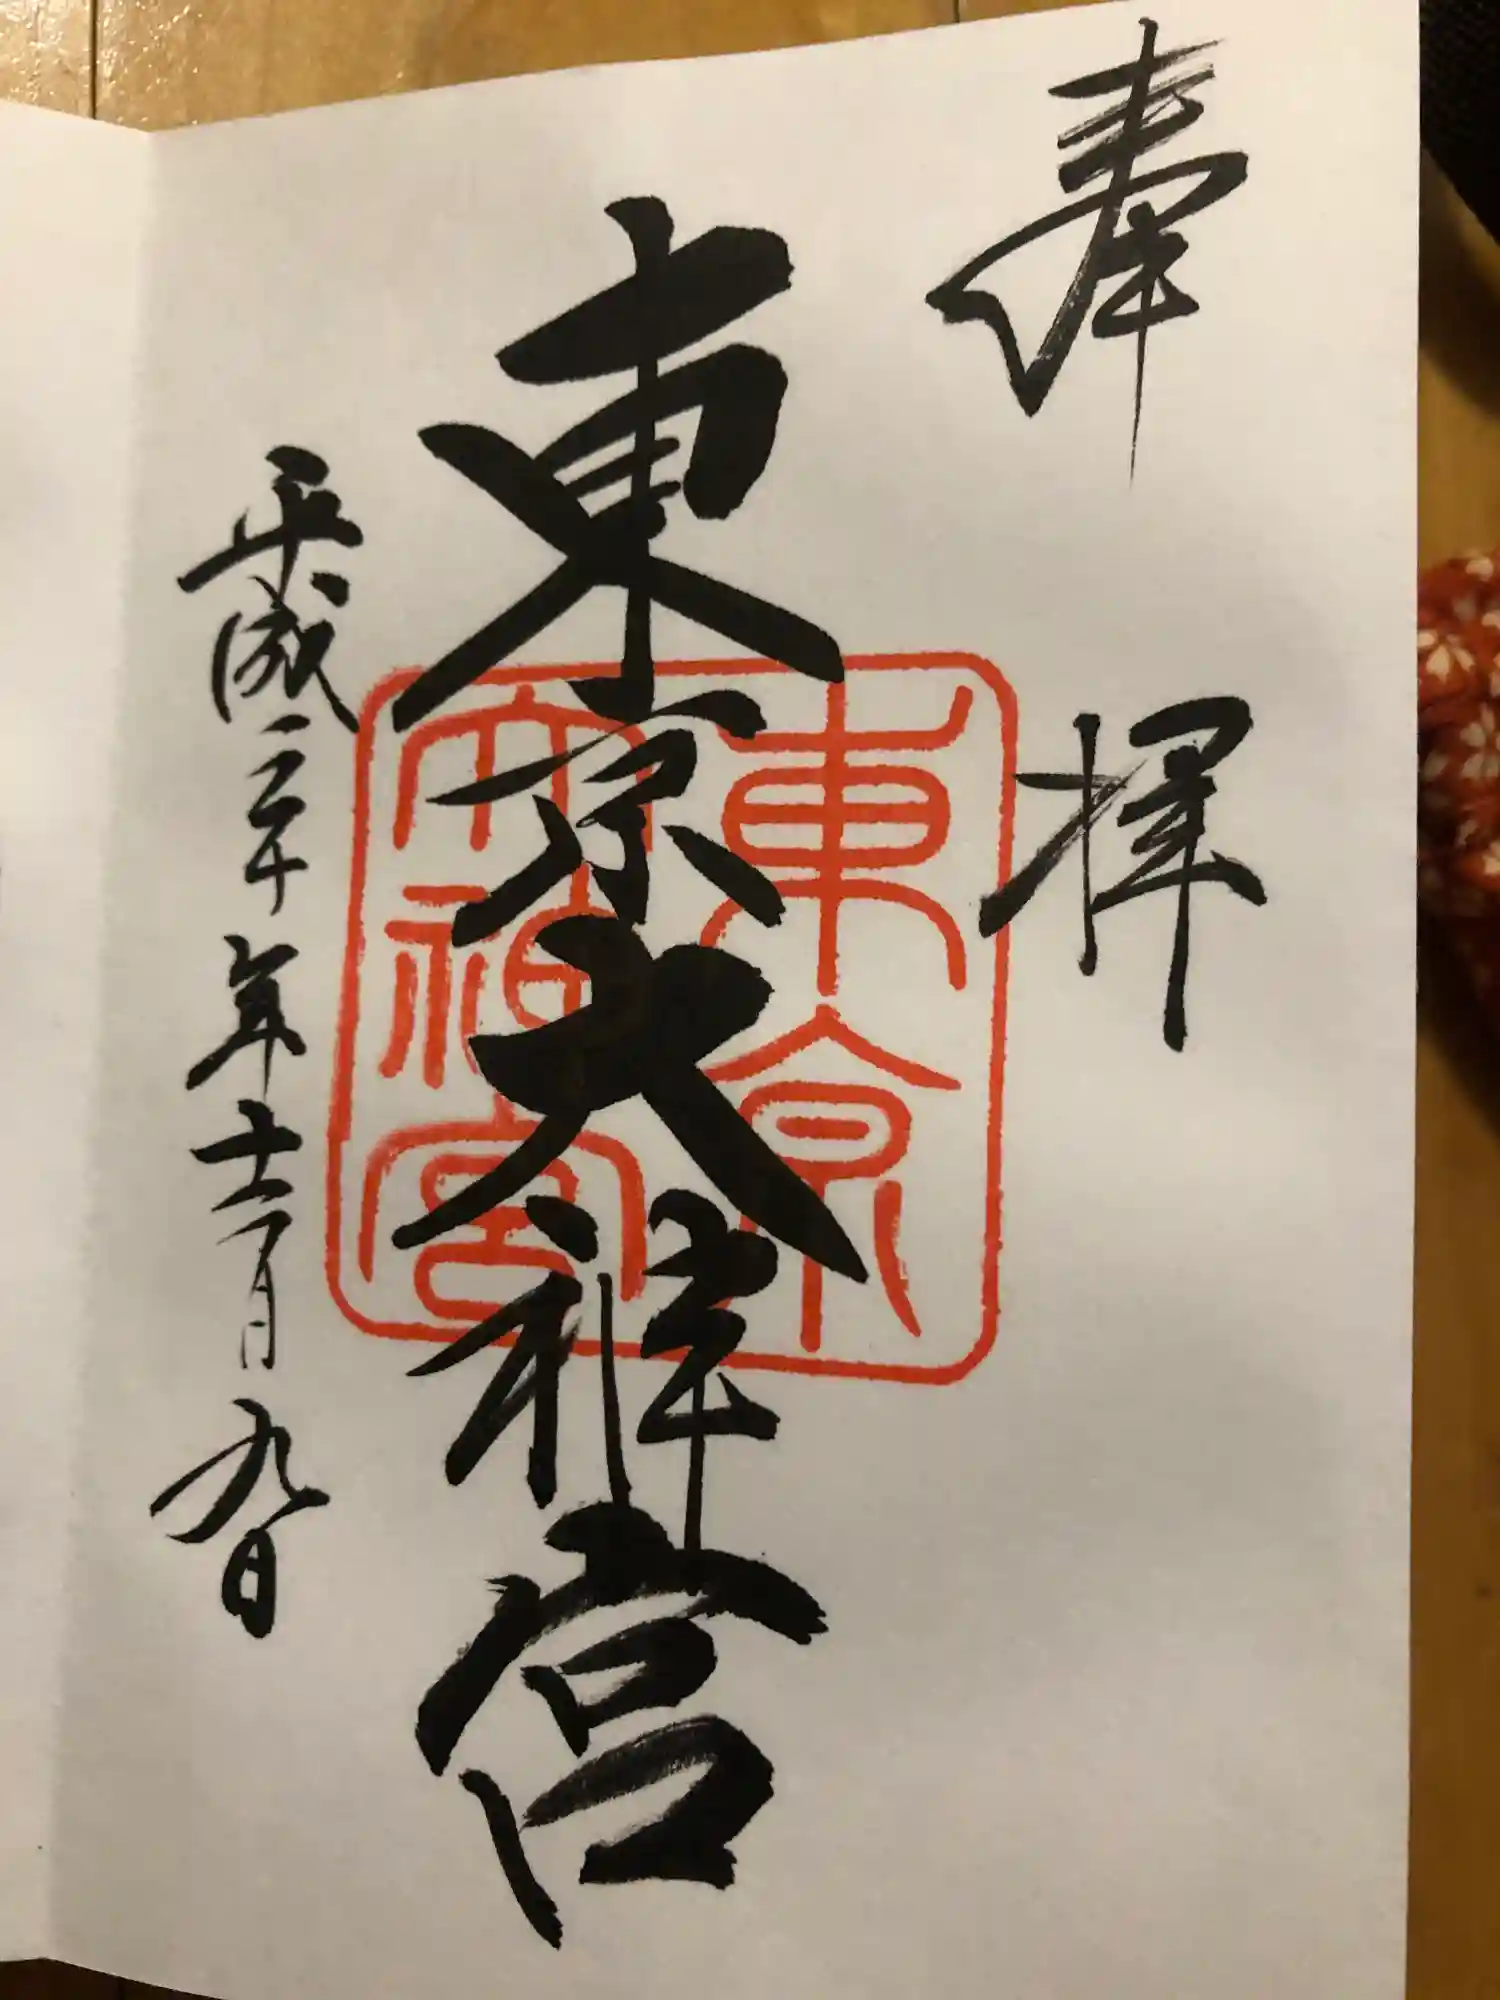 奉拝
東京大神宮
東京大神宮
平成三十年十二月九日